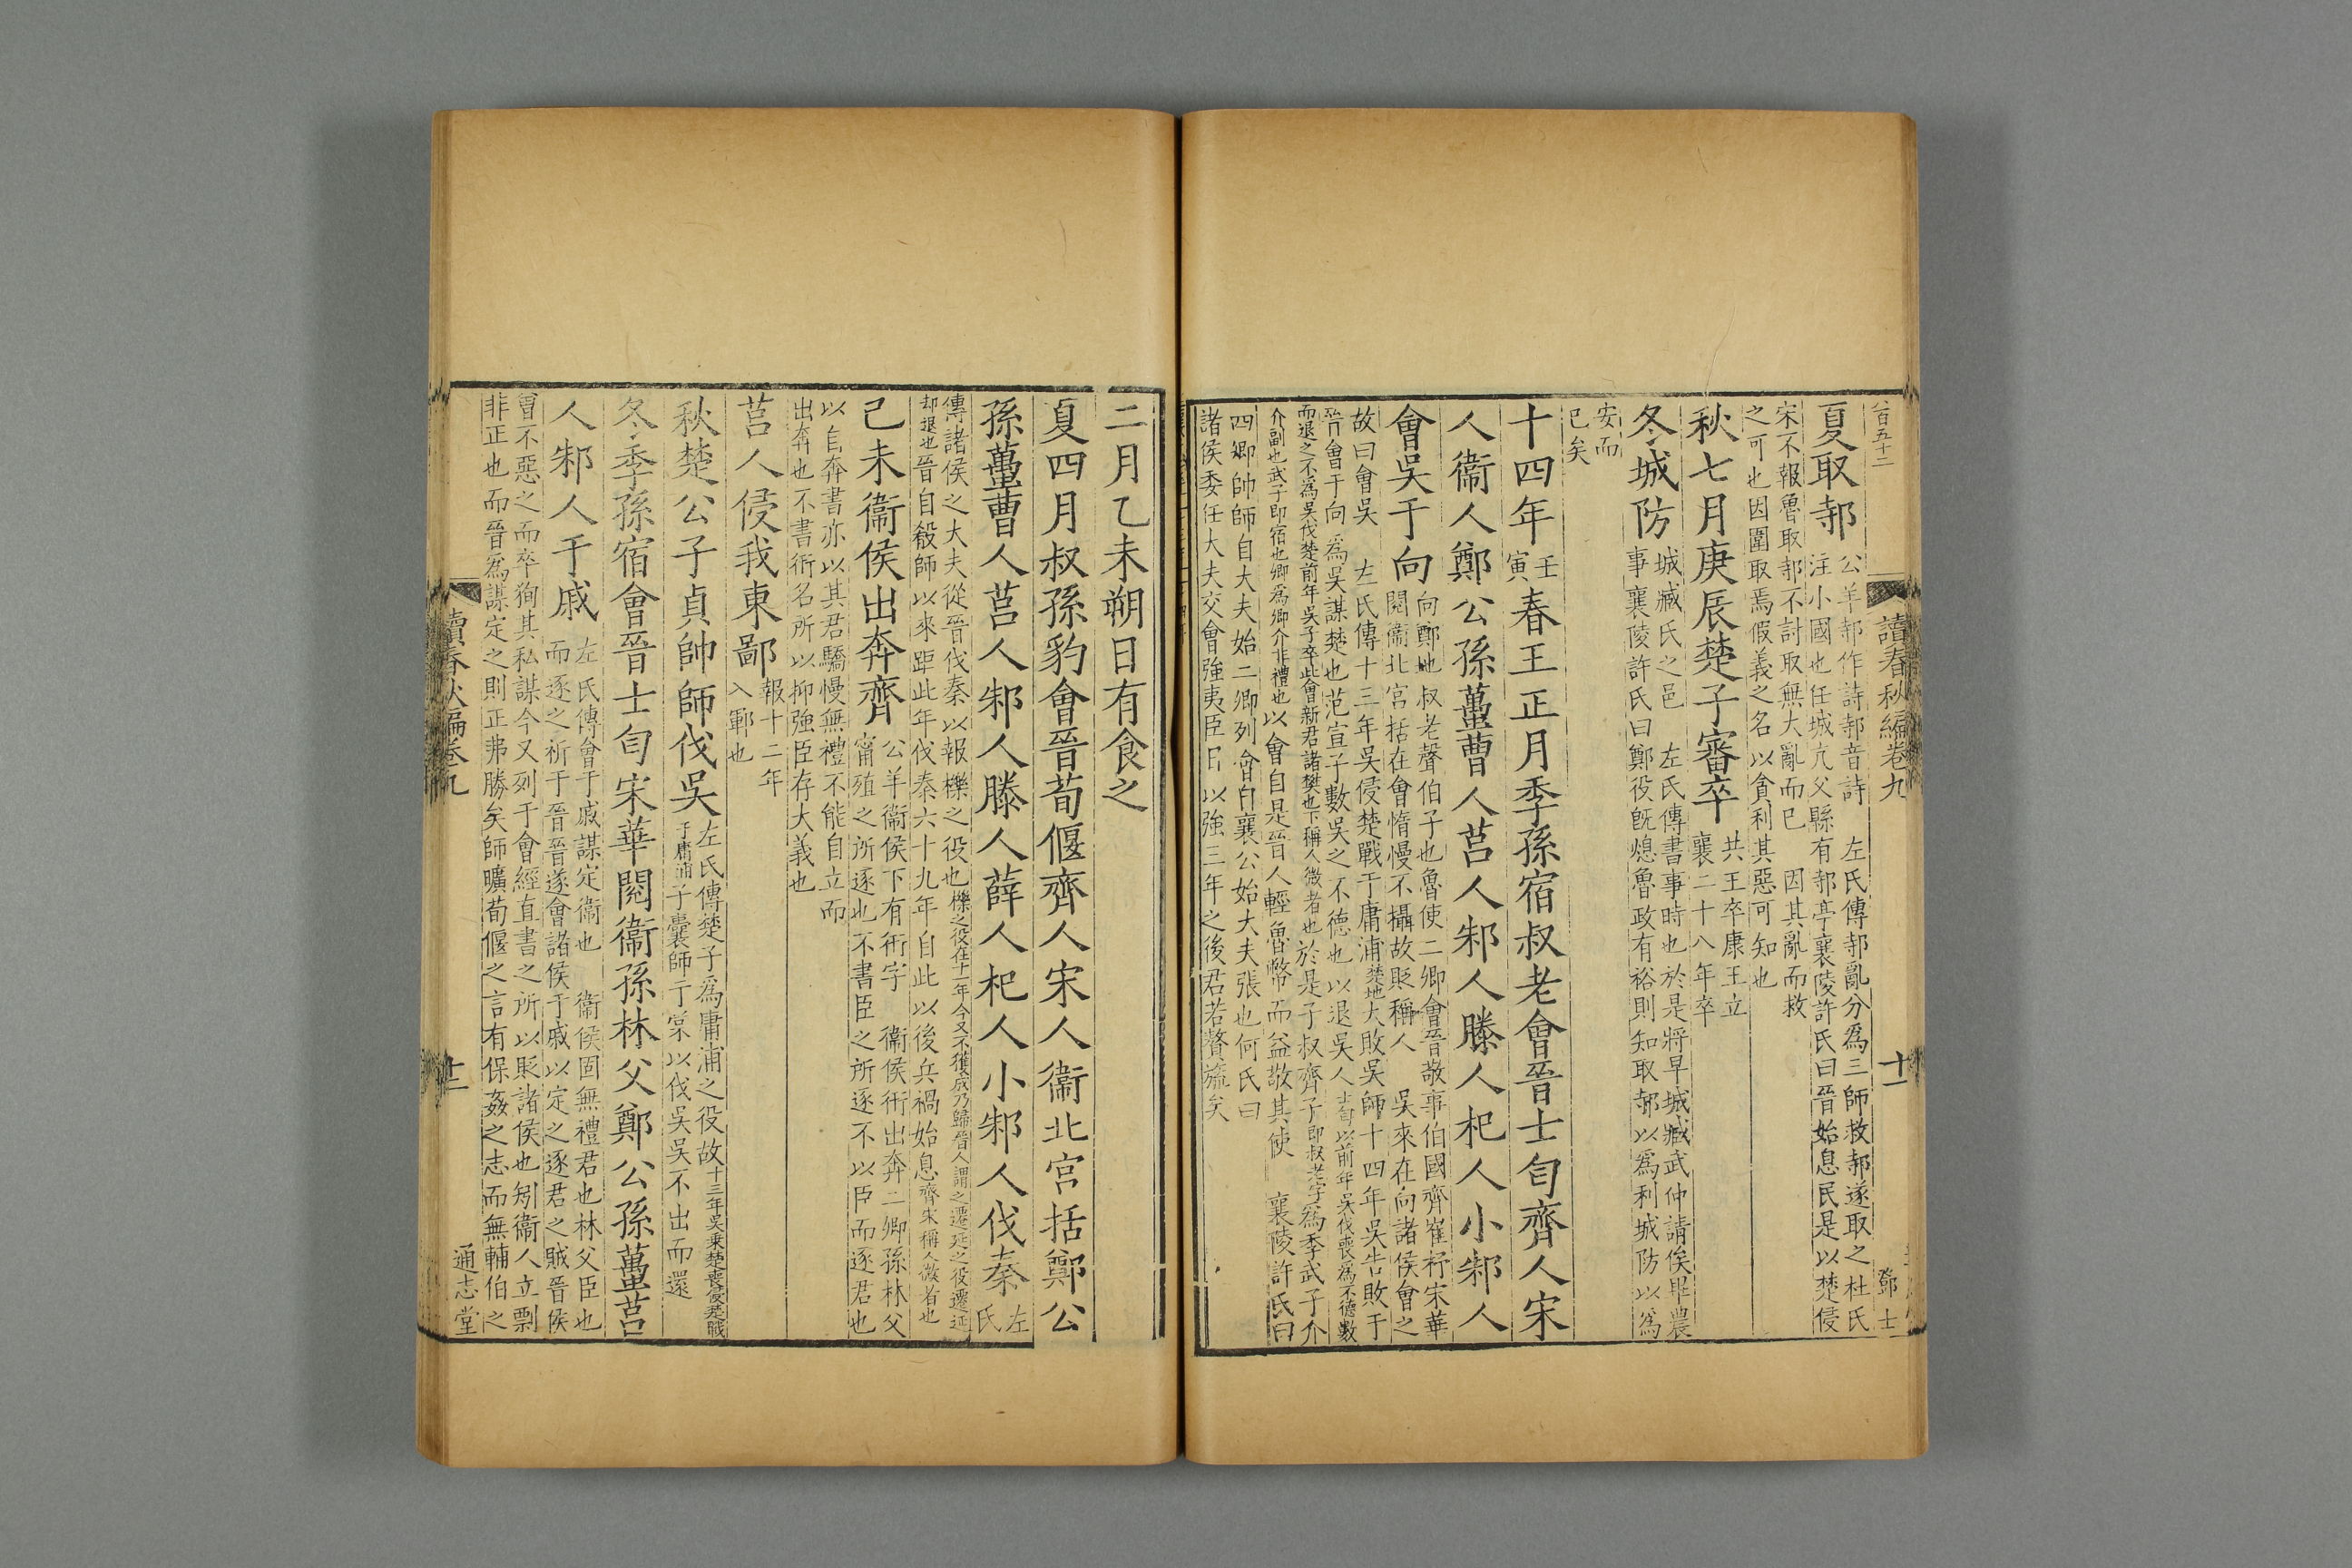 八百五十二
讀春秋編卷九 十一 鄧士
夏取邿 公羊邿作詩邿音詩 左氏傳邿亂分為三師救邿遂取之杜氏
注小國也任城亢父縣有邿亭襄陵許氏曰晉始息民是以楚侵
宋不報魯取邿不討取無大亂而已 因其亂而救
之可也因圍取焉假義之名以貪利其惡可知也
秋七月庚辰楚子審卒 共王卒康王立
襄二十八年卒
冬城防 城臧氏之邑 左氏傳書事時也於是將早城臧武仲請俟畢農
事襄陵許氏曰鄭役既熄魯政有裕則知取邿以為利城防以為
安而
已矣
十四年 壬寅 春王正月季孫宿叔老會晉士匄齊人宋
人衞人鄭公孫蠆曹人莒人邾人滕人杞人小邾人
會吳于向 向鄭地 叔老聲伯子也魯使二卿會晉敬事伯國齊崔杼宋華
閱衞北宮括在會惰慢不攝故貶稱人 吳來在向諸侯會之
故曰會吳 左氏傳十三年吳侵楚戰于庸浦楚地大敗吳師十四年吳告敗于
晉會于向為吳謀楚也范宣子數吳之不德也以退吳人士匄以前年吳伐喪為不德數
而退之不為吳伐楚前年吳子卒此會新君諸樊也下稱人微者也於是子叔齊子即叔老字為季武子介
介副也武子即宿也卿為卿介非禮也以會自是晉人輕魯幣而益敬其使 襄陵許氏曰
四卿帥師自大夫始二卿列會自襄公始大夫張也何氏曰
諸侯委任大夫交會強夷臣日以強三年之後君若贅旒矣
二月乙未朔日有食之
夏四月叔孫豹會晉荀偃齊人宋人衞北宮括鄭公
孫蠆曹人莒人邾人滕人薛人杞人小邾人伐秦 左氏
傳諸侯之大夫從晉伐秦以報櫟之役也櫟之役在十一年今又不獲成乃歸晉人謂之遷延之役遷延
却退也晉自殽師以來距此年伐秦六十九年自此以後兵禍始息齊宋稱人微者也
己未衞侯出奔齊 公羊衞侯下有衎字 衞侯衎出奔二卿孫林父
甯殖之所逐也不書臣之所逐不以臣而逐君也
以自奔書亦以其君驕慢無禮不能自立而
出奔也不書衎名所以抑強臣存大義也
莒人侵我東鄙 報十二年
入鄆也
秋楚公子貞帥師伐吳 左氏傳楚子為庸浦之役故十三年吳乘楚喪侵楚戰
于庸浦子囊師于棠以伐吳吳不出而還
冬季孫宿會晉士匄宋華閱衞孫林父鄭公孫蠆莒
人邾人于戚 左氏傳會于戚謀定衞也 衞侯固無禮君也林父臣也
而逐之祈于晉晉遂會諸侯于戚以定之逐君之賊晉侯
曾不惡之而卒狥其私謀今又列于會經直書之所以貶諸侯也矧衞人立剽
非正也而晉為謀定之則正弗勝矣師曠荀偃之言有保姦之志而無輔伯之
讀春秋編卷九 十二 通志堂